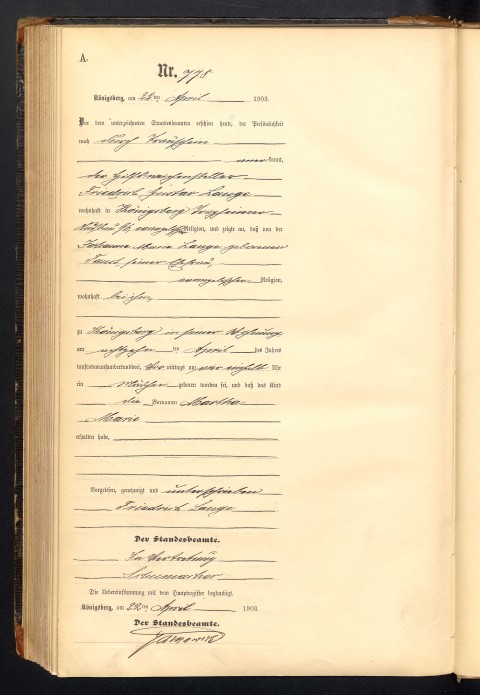 A.
Nr. 778
Königsberg, am 22ten April 1903.
Vor dem unterzeichneten Standesbeamten erschien heute, der Persönlichkeit
nach durch Trauschein
anerkannt,
der Hilfsweichensteller
Friedrich Gustav Lange
wohnhaft in Königsberg
evangelischer Religion, und zeigte an, daß von der
Johanna Maria Lange geborenen
seiner Ehefrau,
evangelischer Religion,
wohnhaft bei ihm,
zu Königsberg in seiner Wohnung
am achtzehnten April des Jahres
tausendneunhundertdrei, Vormittags um Uhr
ein Mädchen geboren worden sei, und daß das Kind
die Vornamen Martha
Marie
erhalten habe,
Vorgelesen, genehmigt und unterschrieben
Friedrich Lange
Der Standesbeamte.
In Vertretung
Schumacher
Die Uebereinstimmung mit dem Hauptregister beglaubigt.
Königsberg, am 22ten April 1903.
Der Standesbeamte.